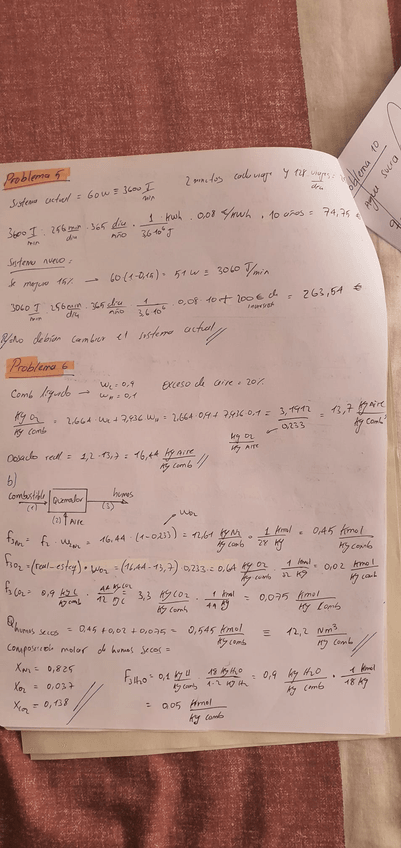 Problema 5
Sistema actual = 60 w ≡ 3600 J/min 2 minutos cada viaje y 128 viajes/día
3600 J/min · 256 min/día · 365 día/año · 1/3.6·10⁶ kWh/J · 0,08 €/kWh · 10 años = 74,75 €
Sistema nuevo:
Se mejora 15% → 60(1-0,15) = 51 w ≡ 3060 J/min
3060 J/min · 256 min/día · 365 día/año · 1/3,6·10⁶ · 0,08·10 + 200 € de = 263,54 €
debían cambiar el sistema actual
Problema 6
Comb líquido → wc = 0,9 wH = 0,1 Exceso de aire = 20%
kg O2/kg comb = 2,664 wc + 7,936 wH = 2,664·0,9 + 7,936·0,1 = 3,1912/0,233 = 13,7 kg Aire/kg comb
kg O2/kg Aire
Dosado real = 1,2 · 13,7 = 16,44 kg Aire/kg comb
b)
combustible (1) Quemador humos (3)
(2) Aire
wO2
f3N2 = f2 · w2N2 = 16,44 · (1-0,233) = 12,61 kg N2/kg comb · 1 kmol/28 kg = 0,45 kmol/kg comb
f3O2 = (real-esteq) · wO2 = (16,44-13,7) 0,233 = 0,64 kg O2/kg comb · 1 kmol/32 kg = 0,02 kmol/kg comb
f3CO2 = 0,9 kg C/kg comb · 44 kg CO2/12 kg C = 3,3 kg CO2/kg comb · 1 kmol/44 kg = 0,075 kmol/kg comb
Qhumos secos = 0,45 + 0,02 + 0,075 = 0,545 kmol/kg comb ≡ 12,2 Nm³/kg comb
composición molar de humos secos =
XN2 = 0,825 F3H2O = 0,1 kg H/kg comb · 18 kg H2O/1·2 kg H2 = 0,9 kg H2O/kg comb · 1 kmol/18 kg
XO2 = 0,037
XCO2 = 0,138 = 0,05 kmol/kg comb
Problema 10